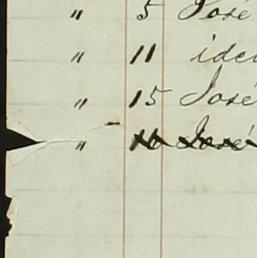 " 5 José
" 11 idem
" 15 José
" 16 José